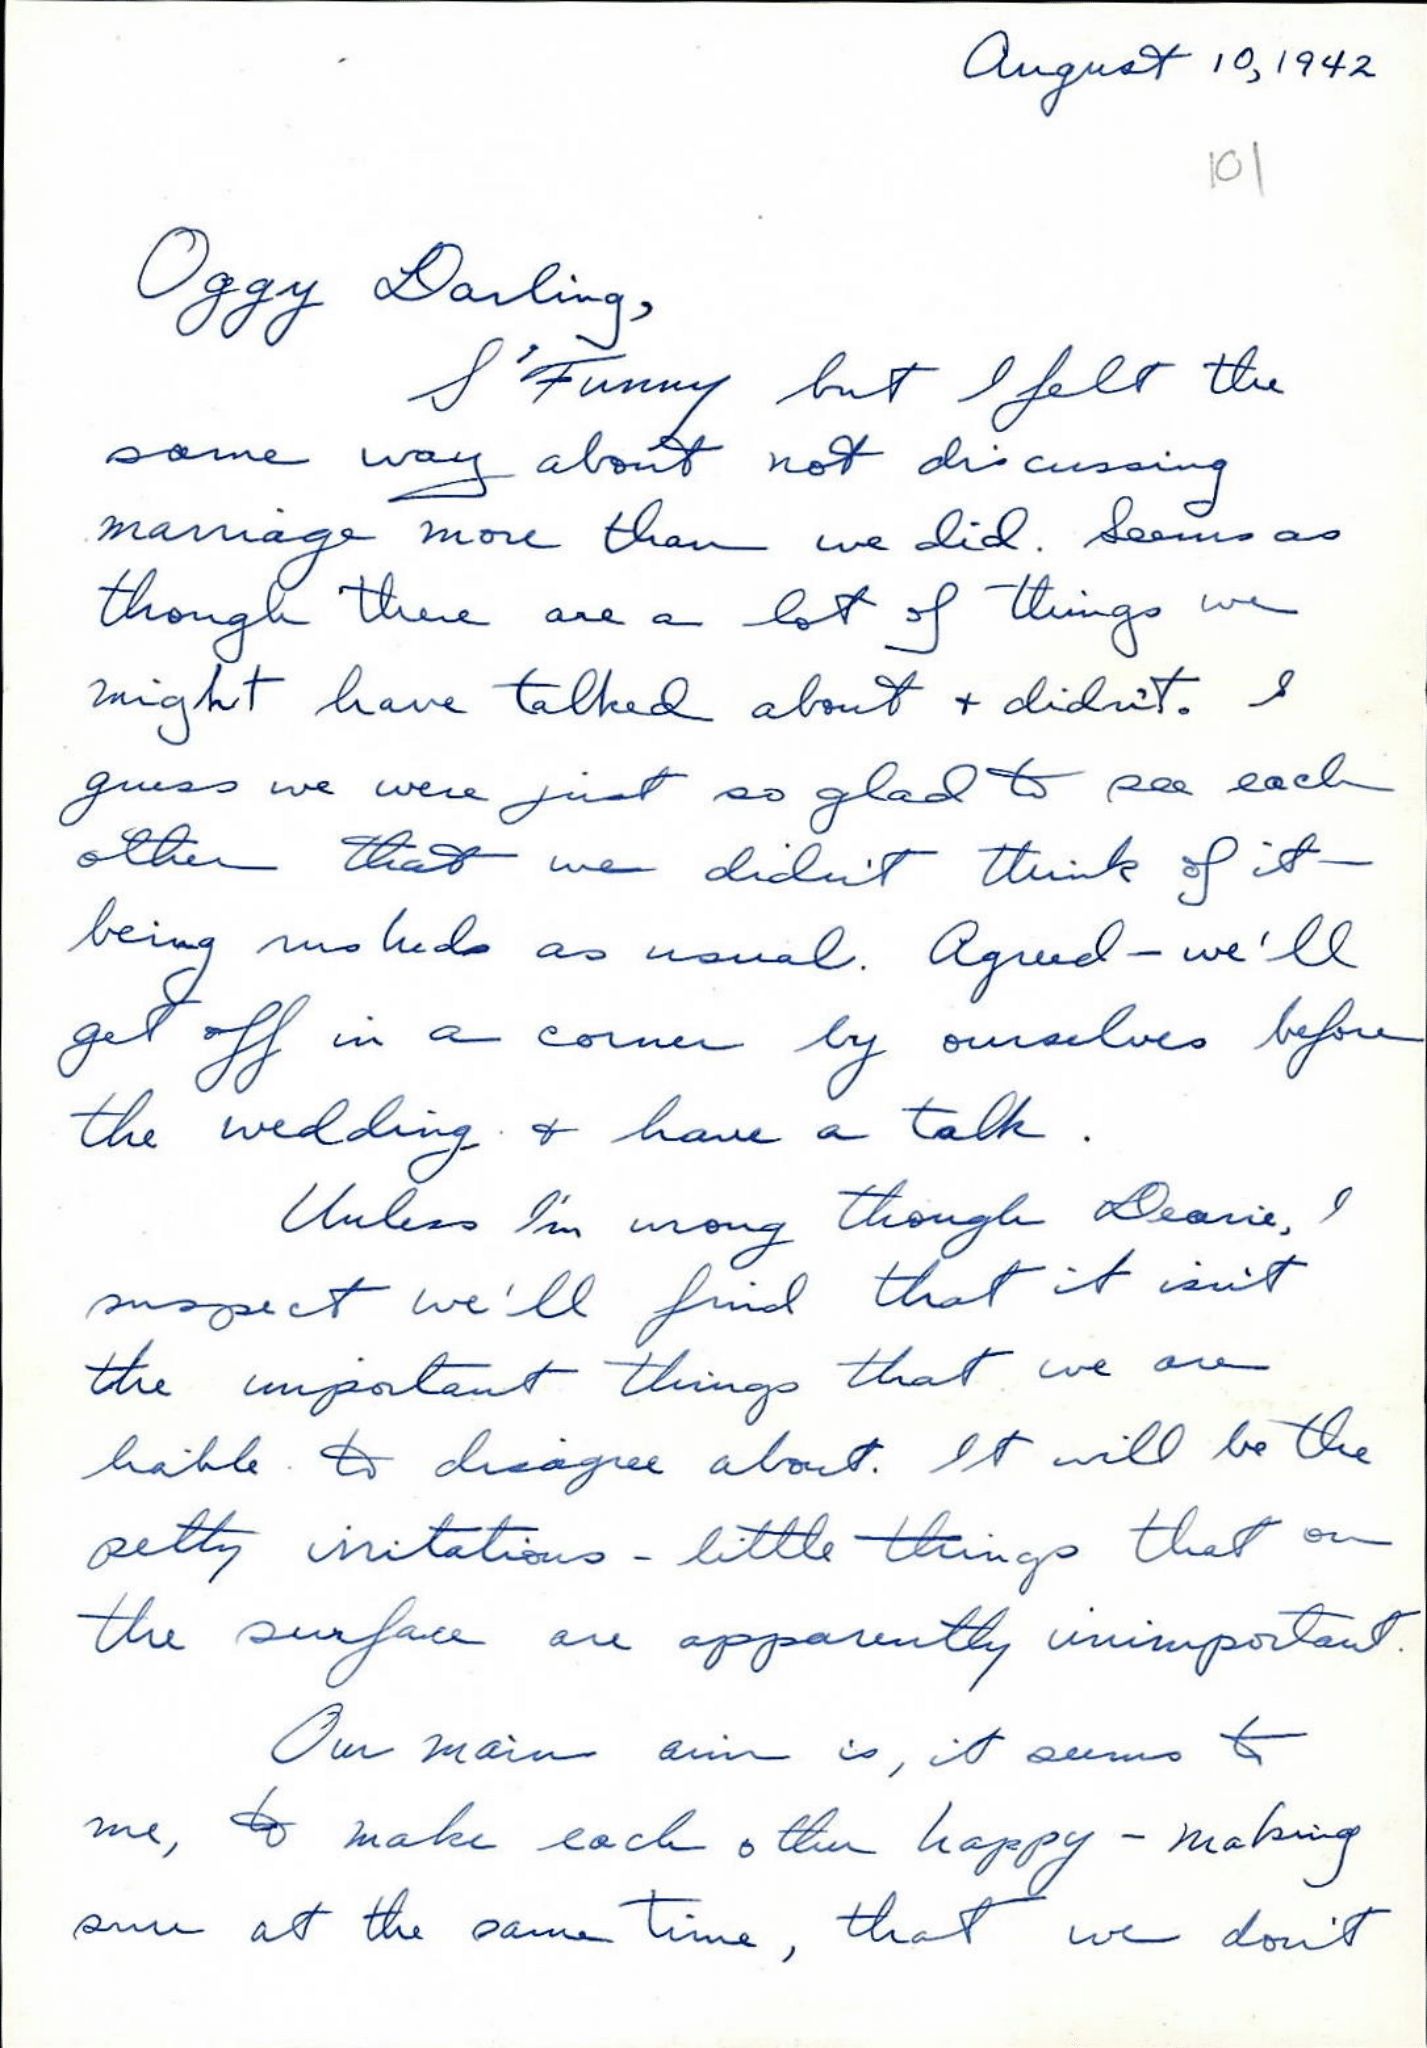 August 10, 1942
101
Oggy Darling,
S'Funny but I felt the
same way about not discussing
marriage more than we did. Seems as
though there are a lot of things we
might have talked about + didn't. I
guess we were just so glad to see each
other that we didn't think of it -
being rushed as usual. Agreed - we'll
get off in a corner by ourselves before
the wedding + have a talk.
Unless I'm wrong though Dearie, I
suspect we'll find that it isn't
the important things that we are
liable to disagree about. It will be the
petty irritations - little things that on
the surface are apparently unimportant.
Our main aim is, it seems to
me, to make each other happy - making
sure at the same time, that we don't